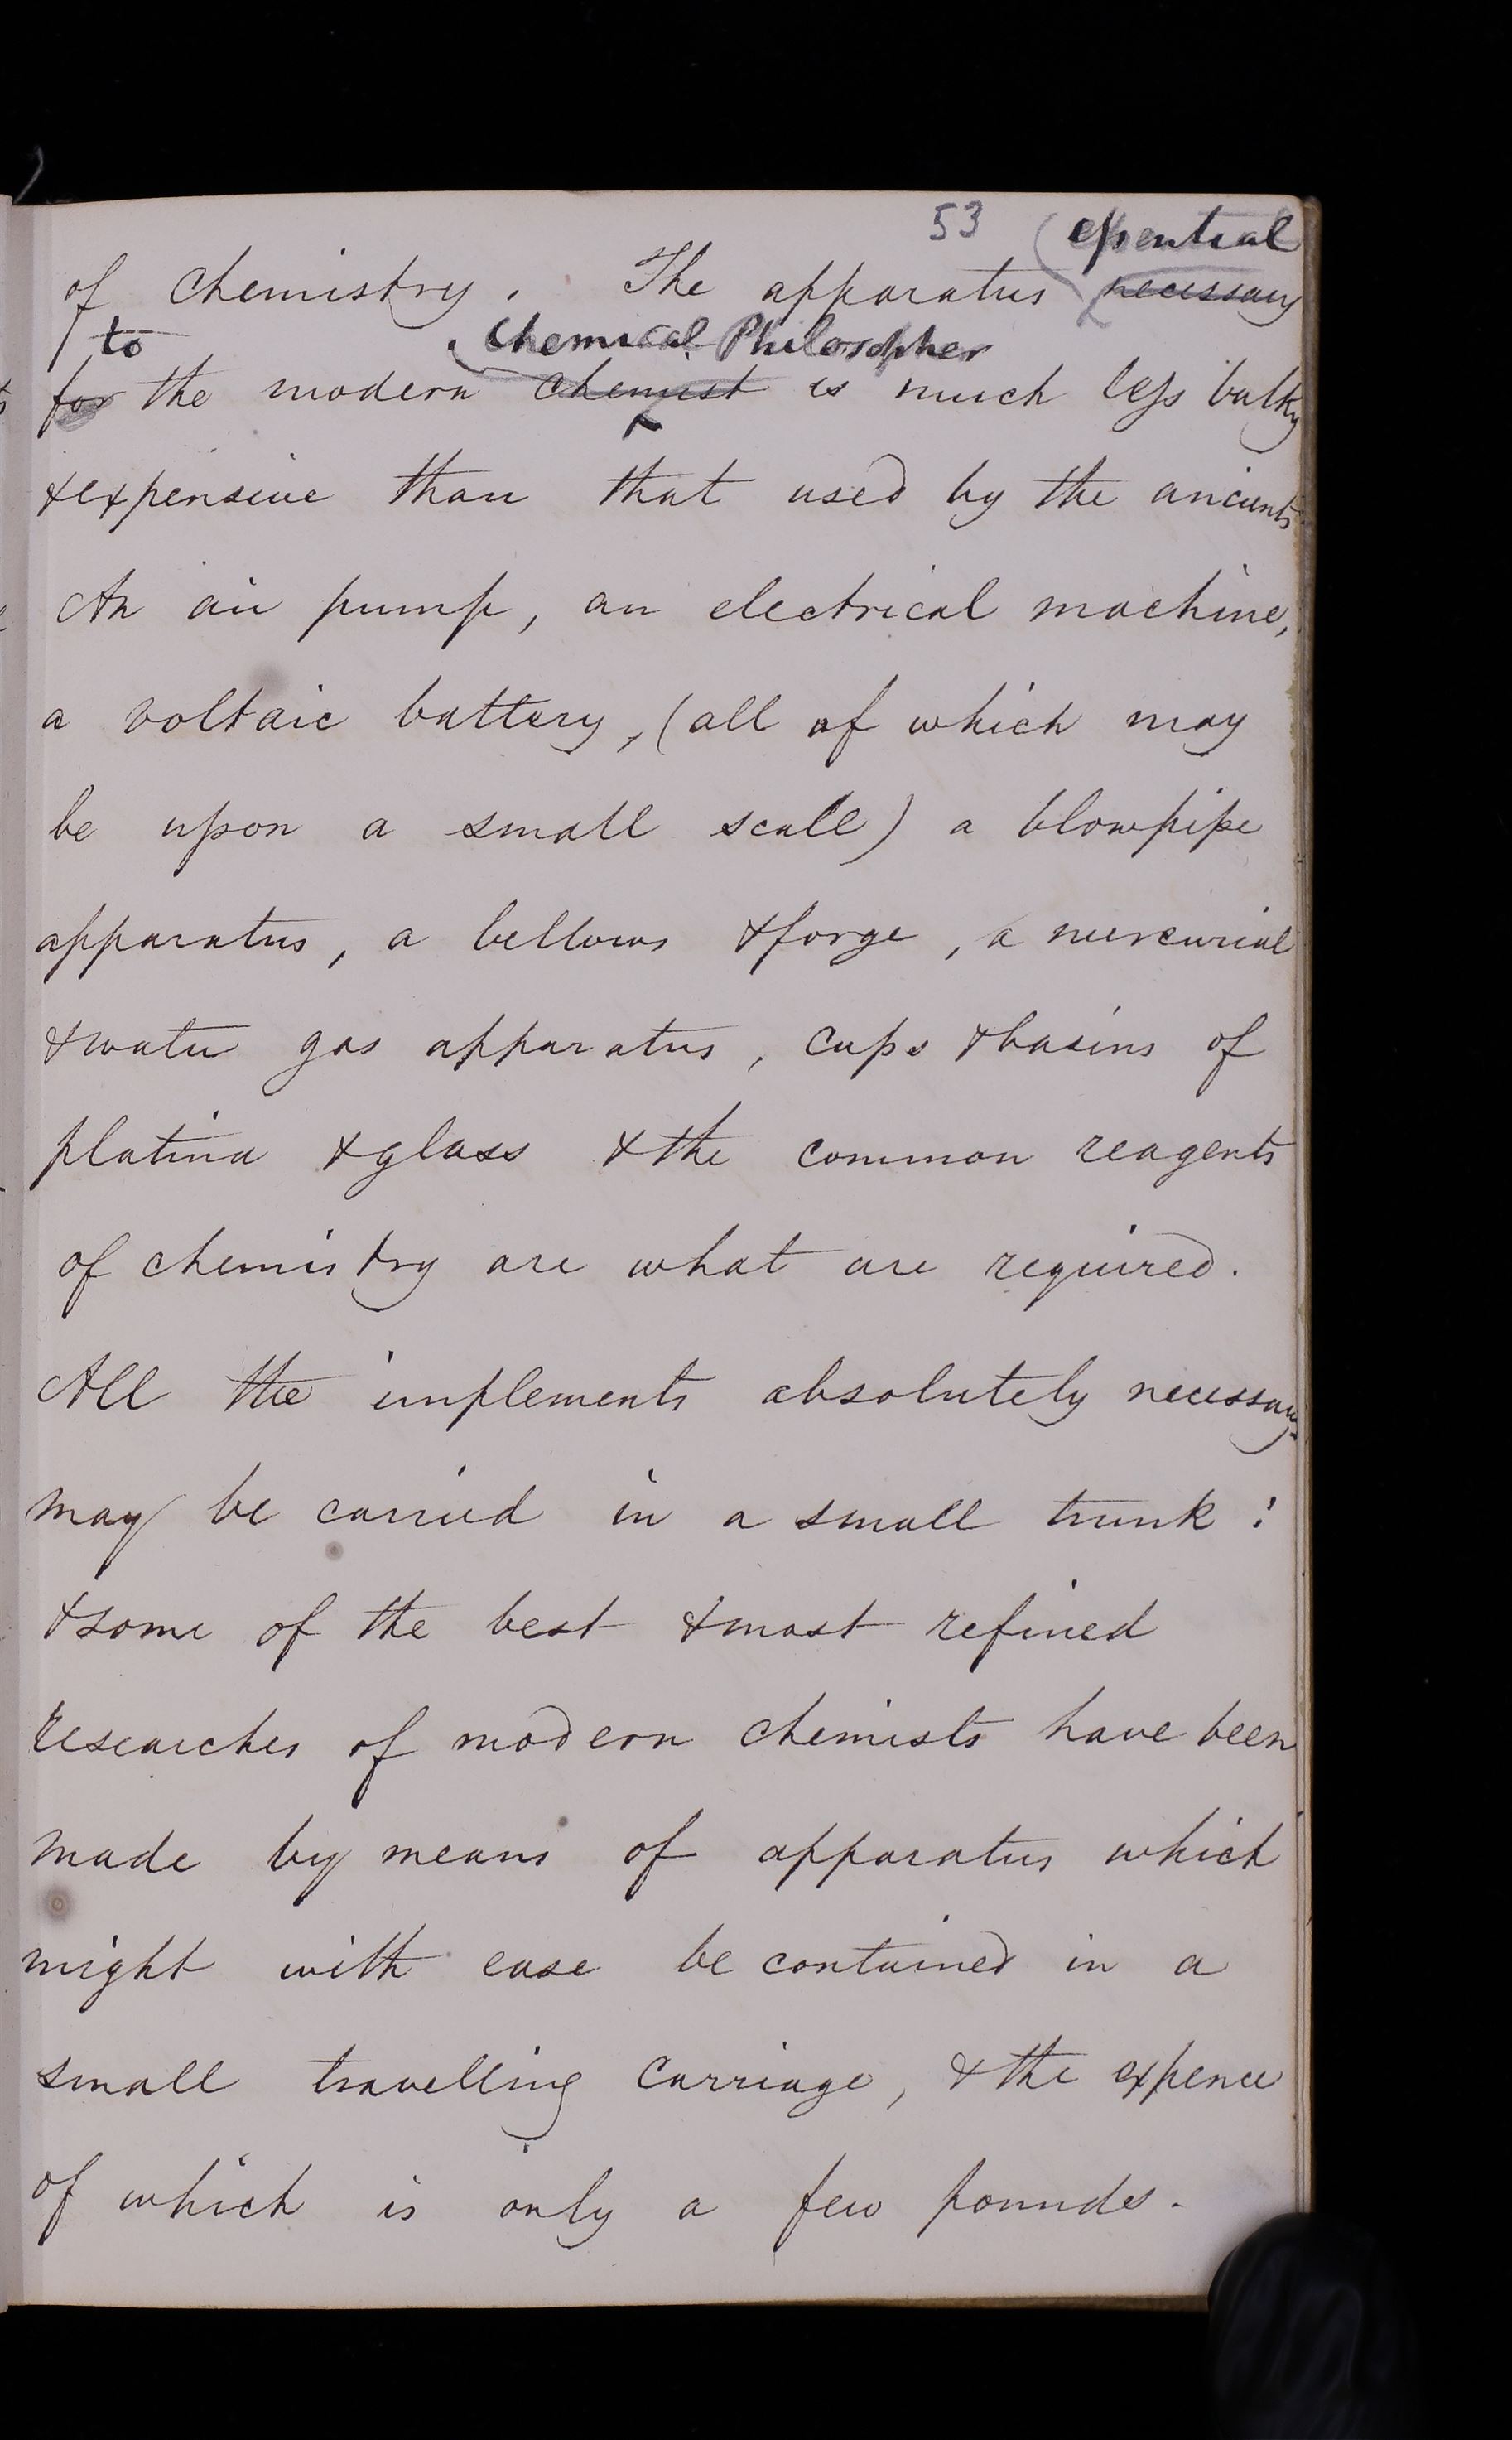 53 essential
of chemistry. The apparatus necessary
to Chemical Philosopher
for the modern chemist is much less bulky
& expensive than that used by the ancients
An air pump, an electrical machine,
a voltaic battery, (all of which may
be upon a small scale) a blowpipe
apparatus, a bellows & forge, a mercurial
& water gas apparatus, cups & basins of
platina & glass & the common reagents
of chemistry are what are required.
All the implements absolutely necessary
may be carried in a small trunk:
& some of the best & most refined
researches of modern chemists have been
made by means of apparatus which
might with ease be contained in a
small travelling carriage, & the expence
of which is only a few pounds.